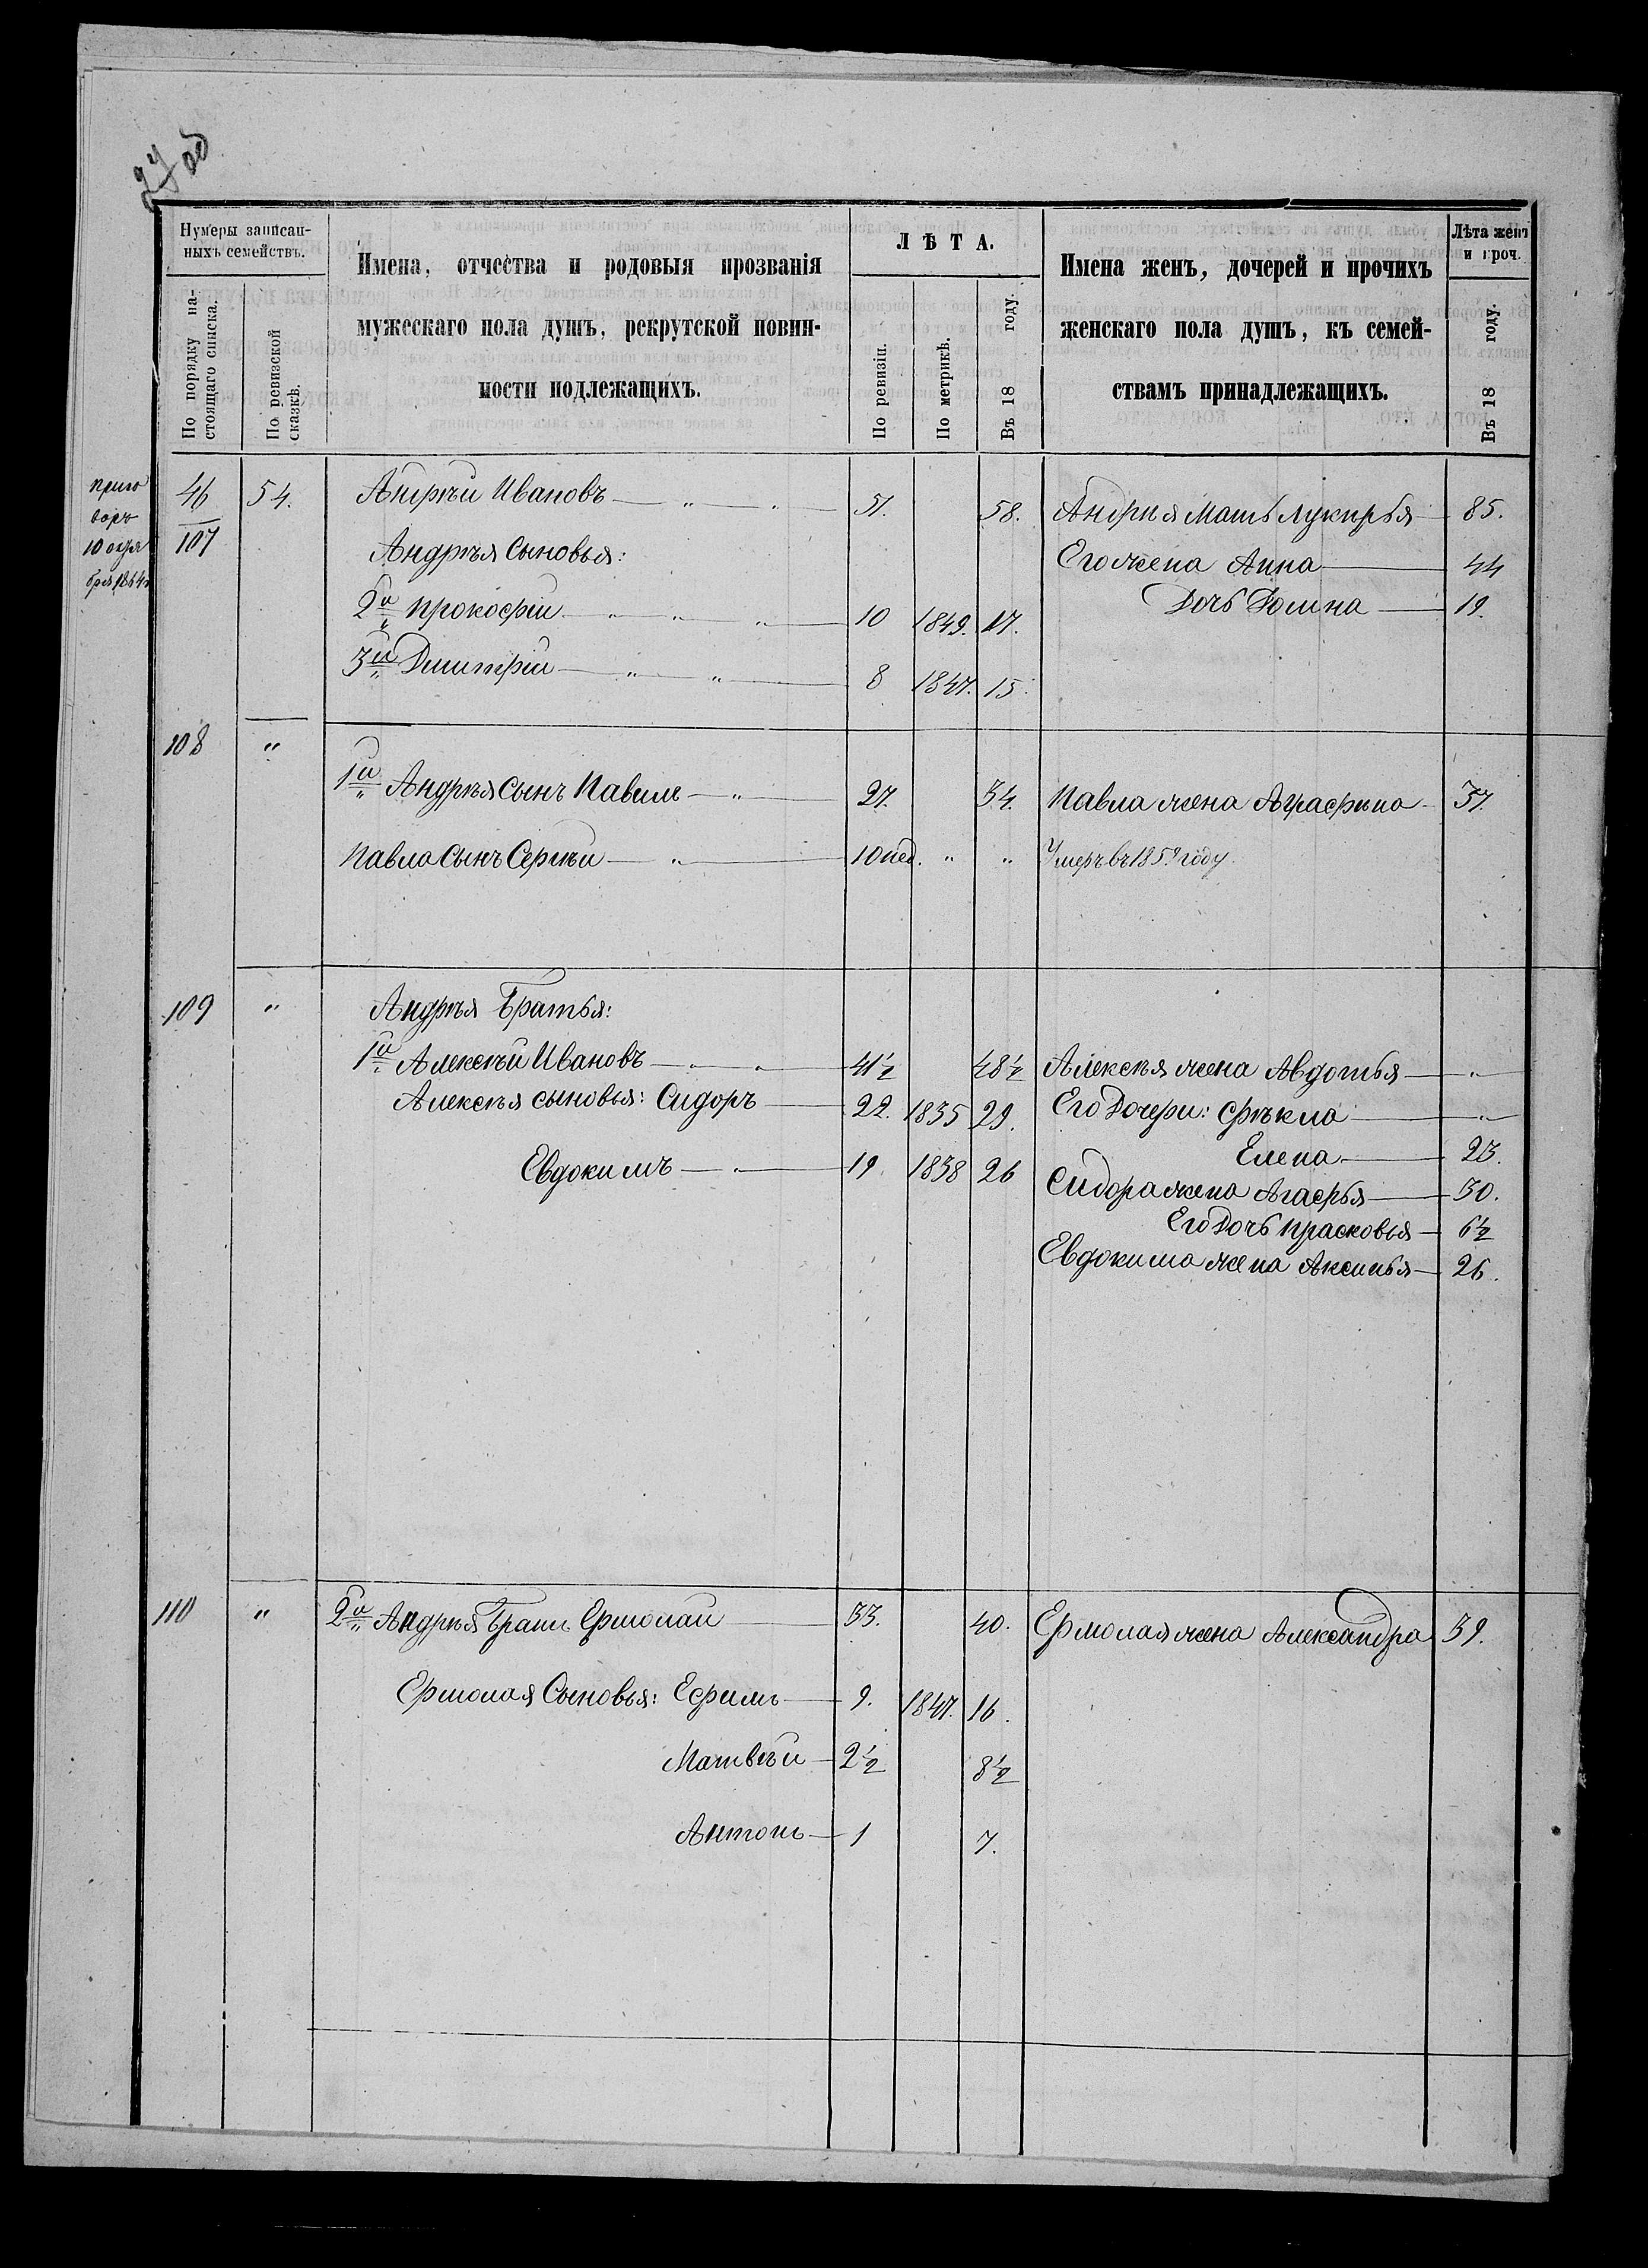 27 об
Нумеры записан-
ныхъ семействъ.
По порядку на-
стоящаго списка.
По ревизской
сказкѣ.
Имена, отчества и родовыя прозванія
мужескаго пола душъ, рекрутской повин-
ности подлежащихъ.
ЛѢТА.
По ревизіи.
По метрикѣ.
Въ 18 году.
Имена женъ, дочерей и прочихъ
женскаго пола душъ, къ семей-
ствамъ принадлежащихъ.
Лѣта женъ
и проч.
Въ 18 году.
приго
воръ
10 октя
бря 1864 г
46 54. Андрѣй Ивановъ — " — " — 51. 58. Андрея Мать Лукерья — 85.
107 Андрѣя сыновья: Его жена Анна — 44
2й Прокофій — " — " — " — 10 1849. 17. Дочь Домна — 19.
3й Дмитрій — " — " — 8 1847. 15.
108 " 1й Андрѣя сынъ Павелъ — " — 27. 34. Павла жена Аграфѣна — 37.
Павла сынъ Сергѣй — " — 10 нед. " " Умеръ въ 1859 году
109 " Андрѣя Братья:
1й Алексѣй Ивановъ — " — " — 41½ 48½ Алексѣя жена Авдотья — " —
Алексѣя сыновья: Сидоръ — 22. 1835 29. Его Дочери: Ѳѣкла — " —
Евдокимъ — " — 19. 1838 26 Елена — 23.
Сидора жена Агафья — 30.
Его Дочь Прасковья — 6½
Евдокима жена Аксинья — 26.
110 " 2й Андрѣя Братъ Ермолай — 33. 40. Ермолая жена Александра 39.
Ермолая Сыновья: Ефимъ — 9. 1847. 16.
Матвѣй — 2½ 8½
Антонъ — 1 7.